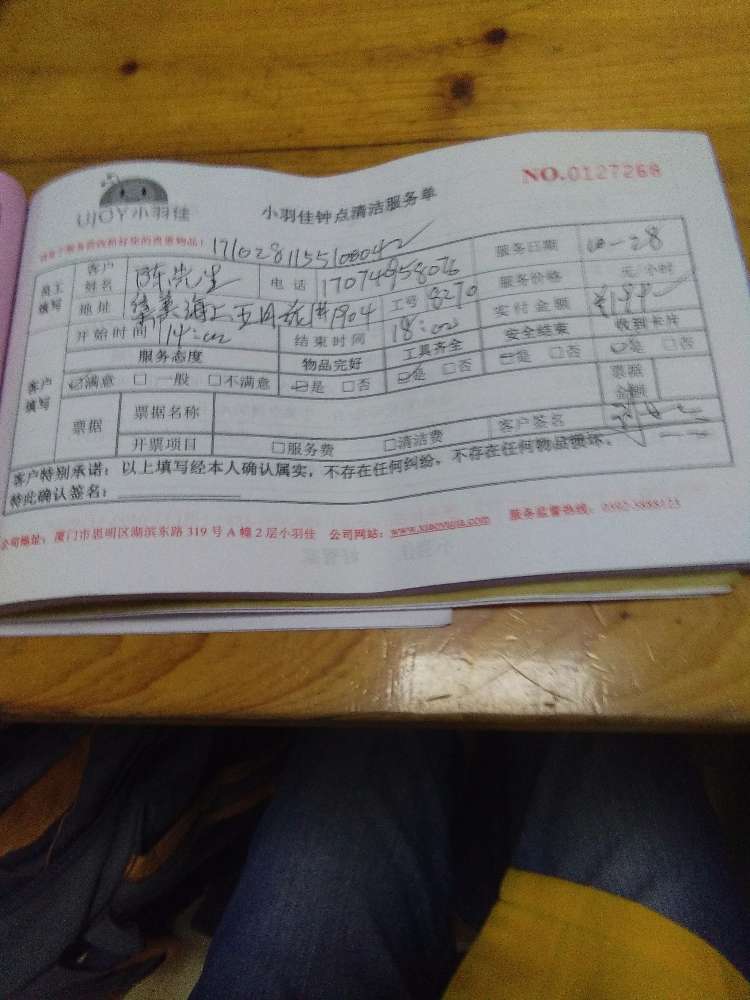 UJOY小羽佳
小羽佳钟点清洁服务单
NO.0127268
1710281155100042
员工填写
客户姓名 陈先生 电话 17074958076 服务日期 10-28
地址 海上五月花 1904 工号 8270 服务价格 元/小时
开始时间 14:00 结束时间 18:00 实付金额 ¥194
客户填写
服务态度 物品完好 工具齐全 安全结束 收到卡片
☑满意 □一般 □不满意 ☑是 □否 ☑是 □否 ☑是 □否 ☑是 □否
票据 票据名称 票据金额
开票项目 □服务费 □清洁费 客户签名
客户特别承诺:以上填写经本人确认属实,不存在任何纠纷,不存在任何物品损坏。
特此确认签名:
公司地址:厦门市思明区湖滨东路 319 号 A 幢 2 层小羽佳 公司网站:www.xiaoyujia.com 服务监督热线: